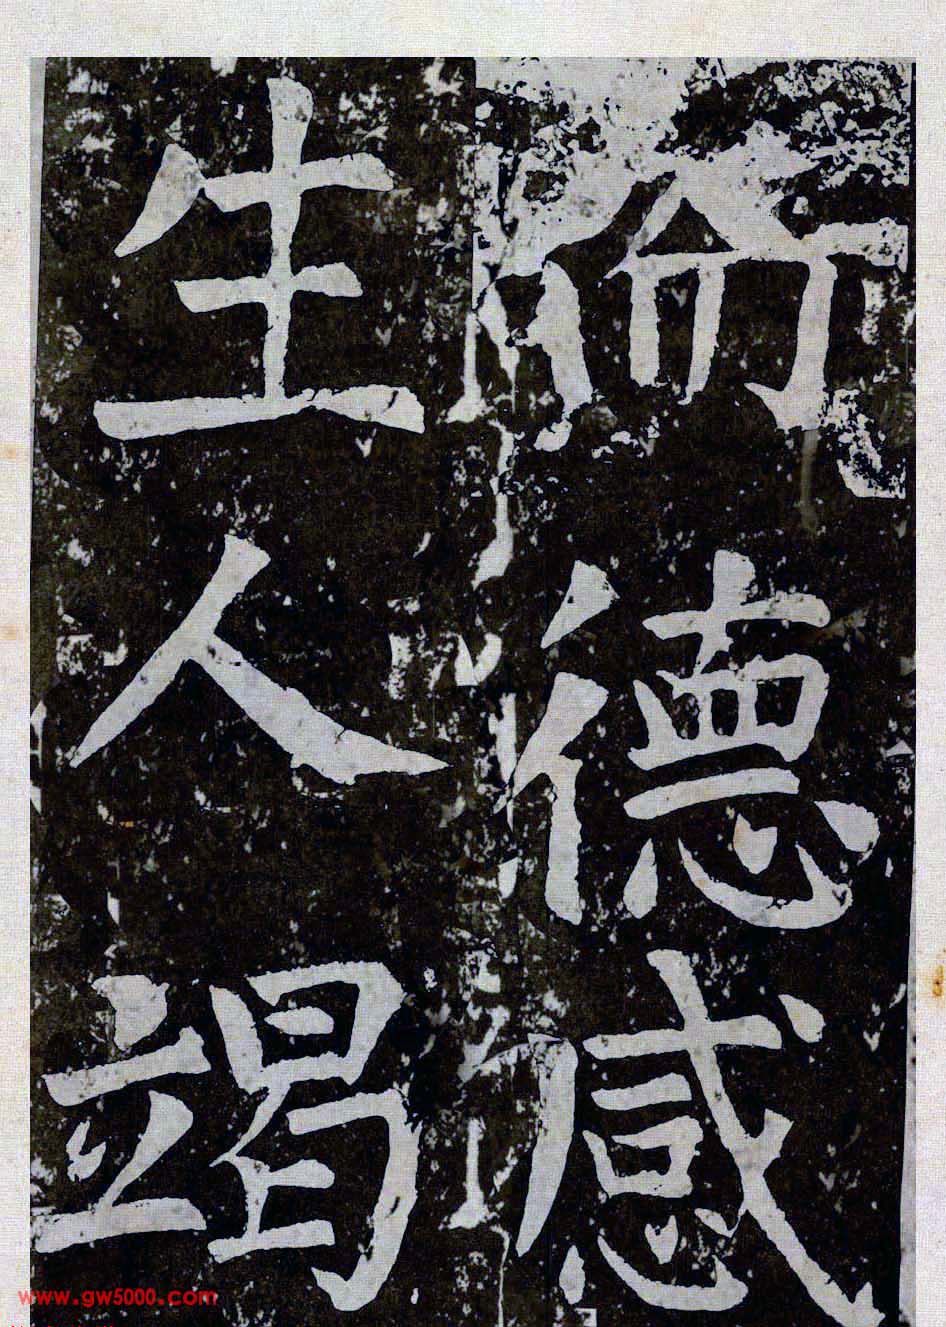 而德感
生人竭
www.gw5000.com